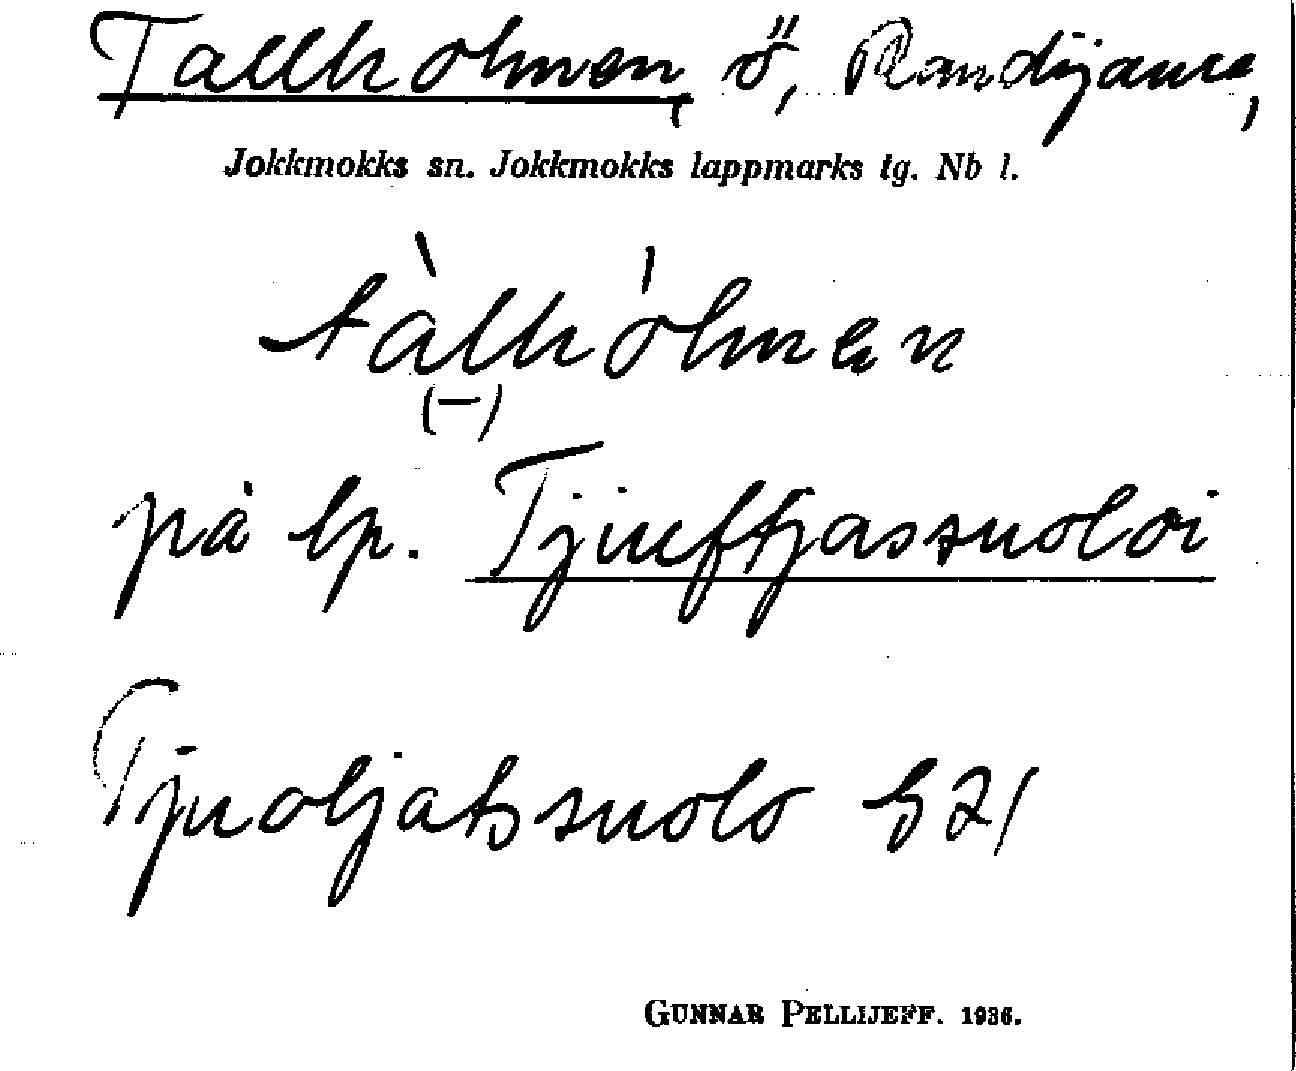 Tallholmen, ö, Randijaure,
Jokkmokks sn. Jokkmokks lappmarks tg. Nb l.
tàlhólmen
(–)
på lp. Tjuftjassuoloi
Tjuoljatssuolo 521
GUNNAR PELLIJEFF. 1936.